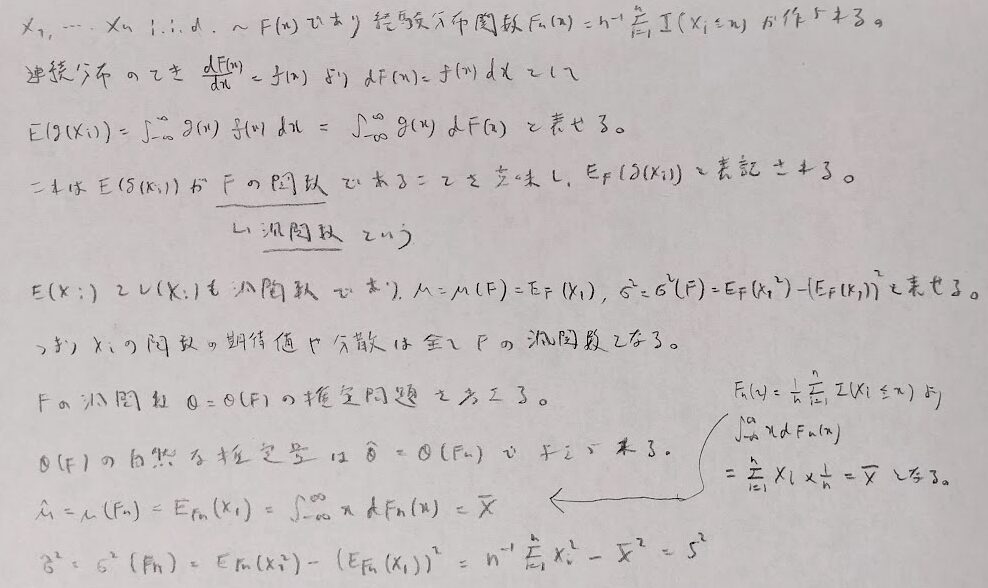 X₁, … Xₙ i.i.d. ~ F(x) であり 経験分布関数 Fₙ(x) = n⁻¹ Σⁿᵢ₌₁ I(Xᵢ≤x) が作られる。
連続分布のとき dF(x)/dx = f(x) より dF(x) = f(x) dx として
E(g(Xᵢ)) = ∫_{-∞}^{∞} g(x) f(x) dx = ∫_{-∞}^{∞} g(x) dF(x) と表せる。
これは E(g(Xᵢ)) が Fの関数 であることを意味し、E_F(g(Xᵢ)) と表記される。
↳ 汎関数 という
E(Xᵢ) と V(Xᵢ) も汎関数であり、μ = μ(F) = E_F(X₁), σ² = σ²(F) = E_F(X₁²) - (E_F(X₁))² と表せる。
つまり Xᵢの関数の期待値や分散は全て Fの汎関数となる。
Fの汎関数 θ = θ(F) の推定問題を考える。
θ(F) の自然な推定量は θ̂ = θ(Fₙ) で与えられる。
μ̂ = μ(Fₙ) = E_{Fₙ}(X₁) = ∫_{-∞}^{∞} x dFₙ(x) = X̄
σ̂² = σ²(Fₙ) = E_{Fₙ}(Xᵢ²) - (E_{Fₙ}(X₁))² = n⁻¹ Σⁿᵢ₌₁ Xᵢ² - X̄² = S²
Fₙ(x) = 1/n Σⁿᵢ₌₁ I(Xᵢ ≤ x) より
∫_{-∞}^{∞} x dFₙ(x)
= Σⁿᵢ₌₁ Xᵢ × 1/n = X̄ となる。